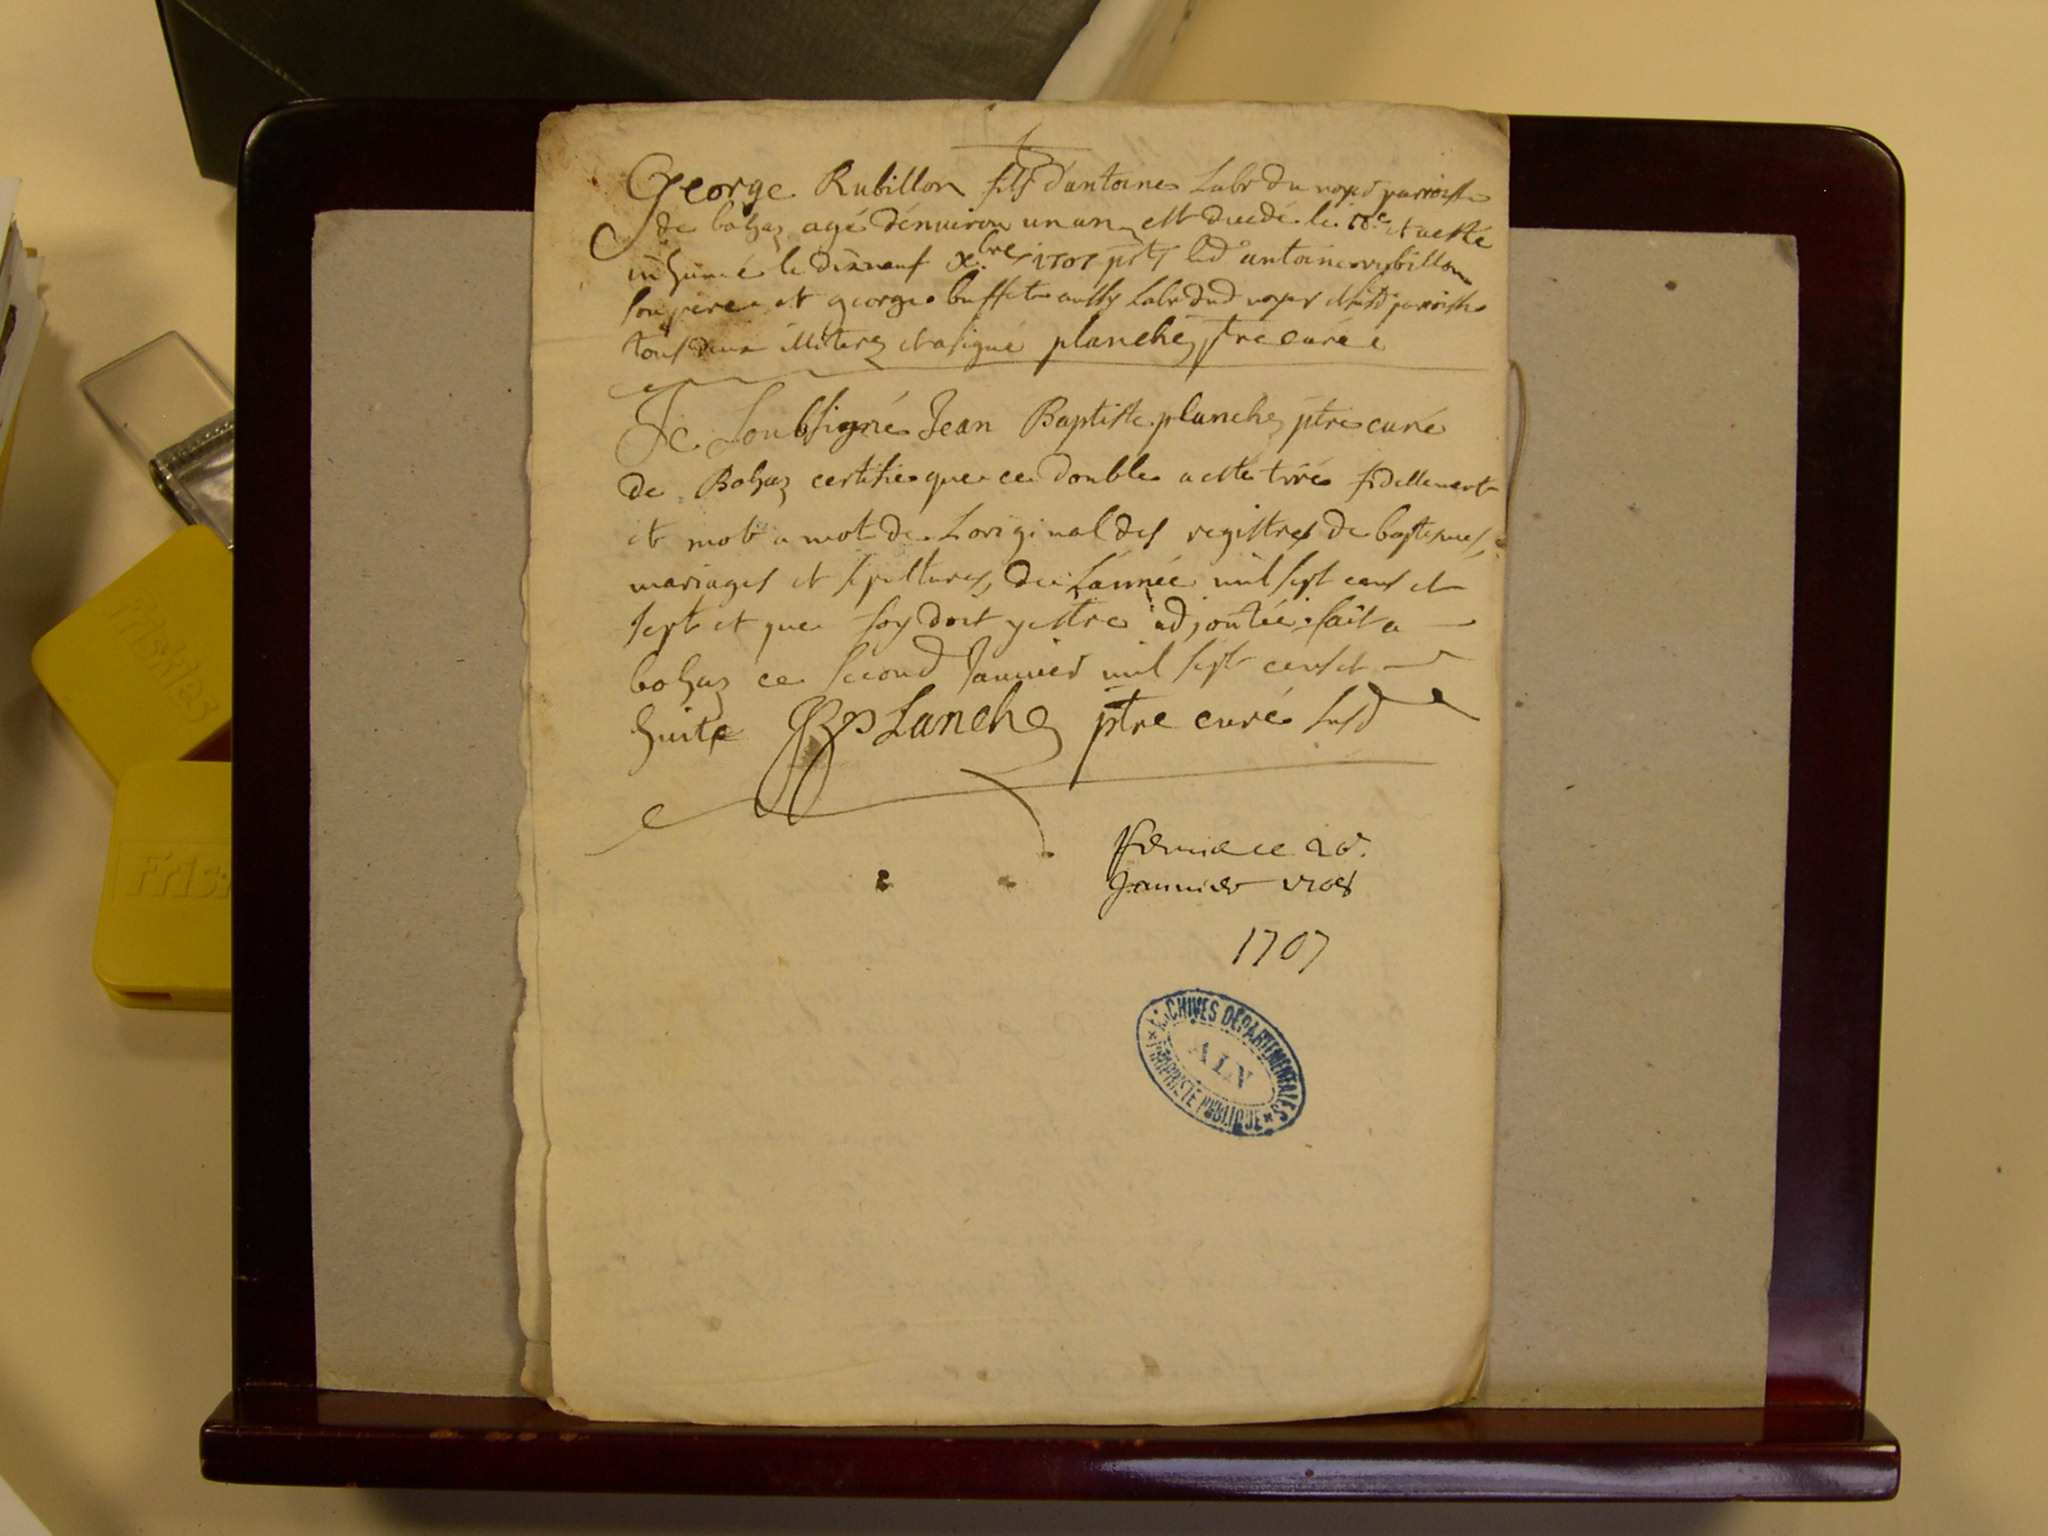 George Rubillon fils d'antoine Labr du noyer parroisse
de bohaz agé d'enuiron un an est decedé le 18e et a esté
inhumé le dixneuf Xbre 1707 pnts led antoine rubillon
son pere et george buffet aussy Labr dud noyer et susd parroisse
tous deux illiterez et a signé planchez ptre curé
Je Soubsigné Jean Baptiste planchez ptre curé
de Bohaz certifie que ce double a esté tiré fidellement
et mot a mot de Loriginal des registres de baptesmes,
mariages et sepultures, de Lannée mil sept cens et
sept et que foy doit y estre adjoutée. fait a
bohaz ce second Januier mil sept cens et
huite JBpLanchez ptre curé susd
ce 26.
Januier 1708
1707
ARCHIVES DÉPARTEMENTALES
AIN
PROPRIÉTÉ PUBLIQUE
Friskies
Fris